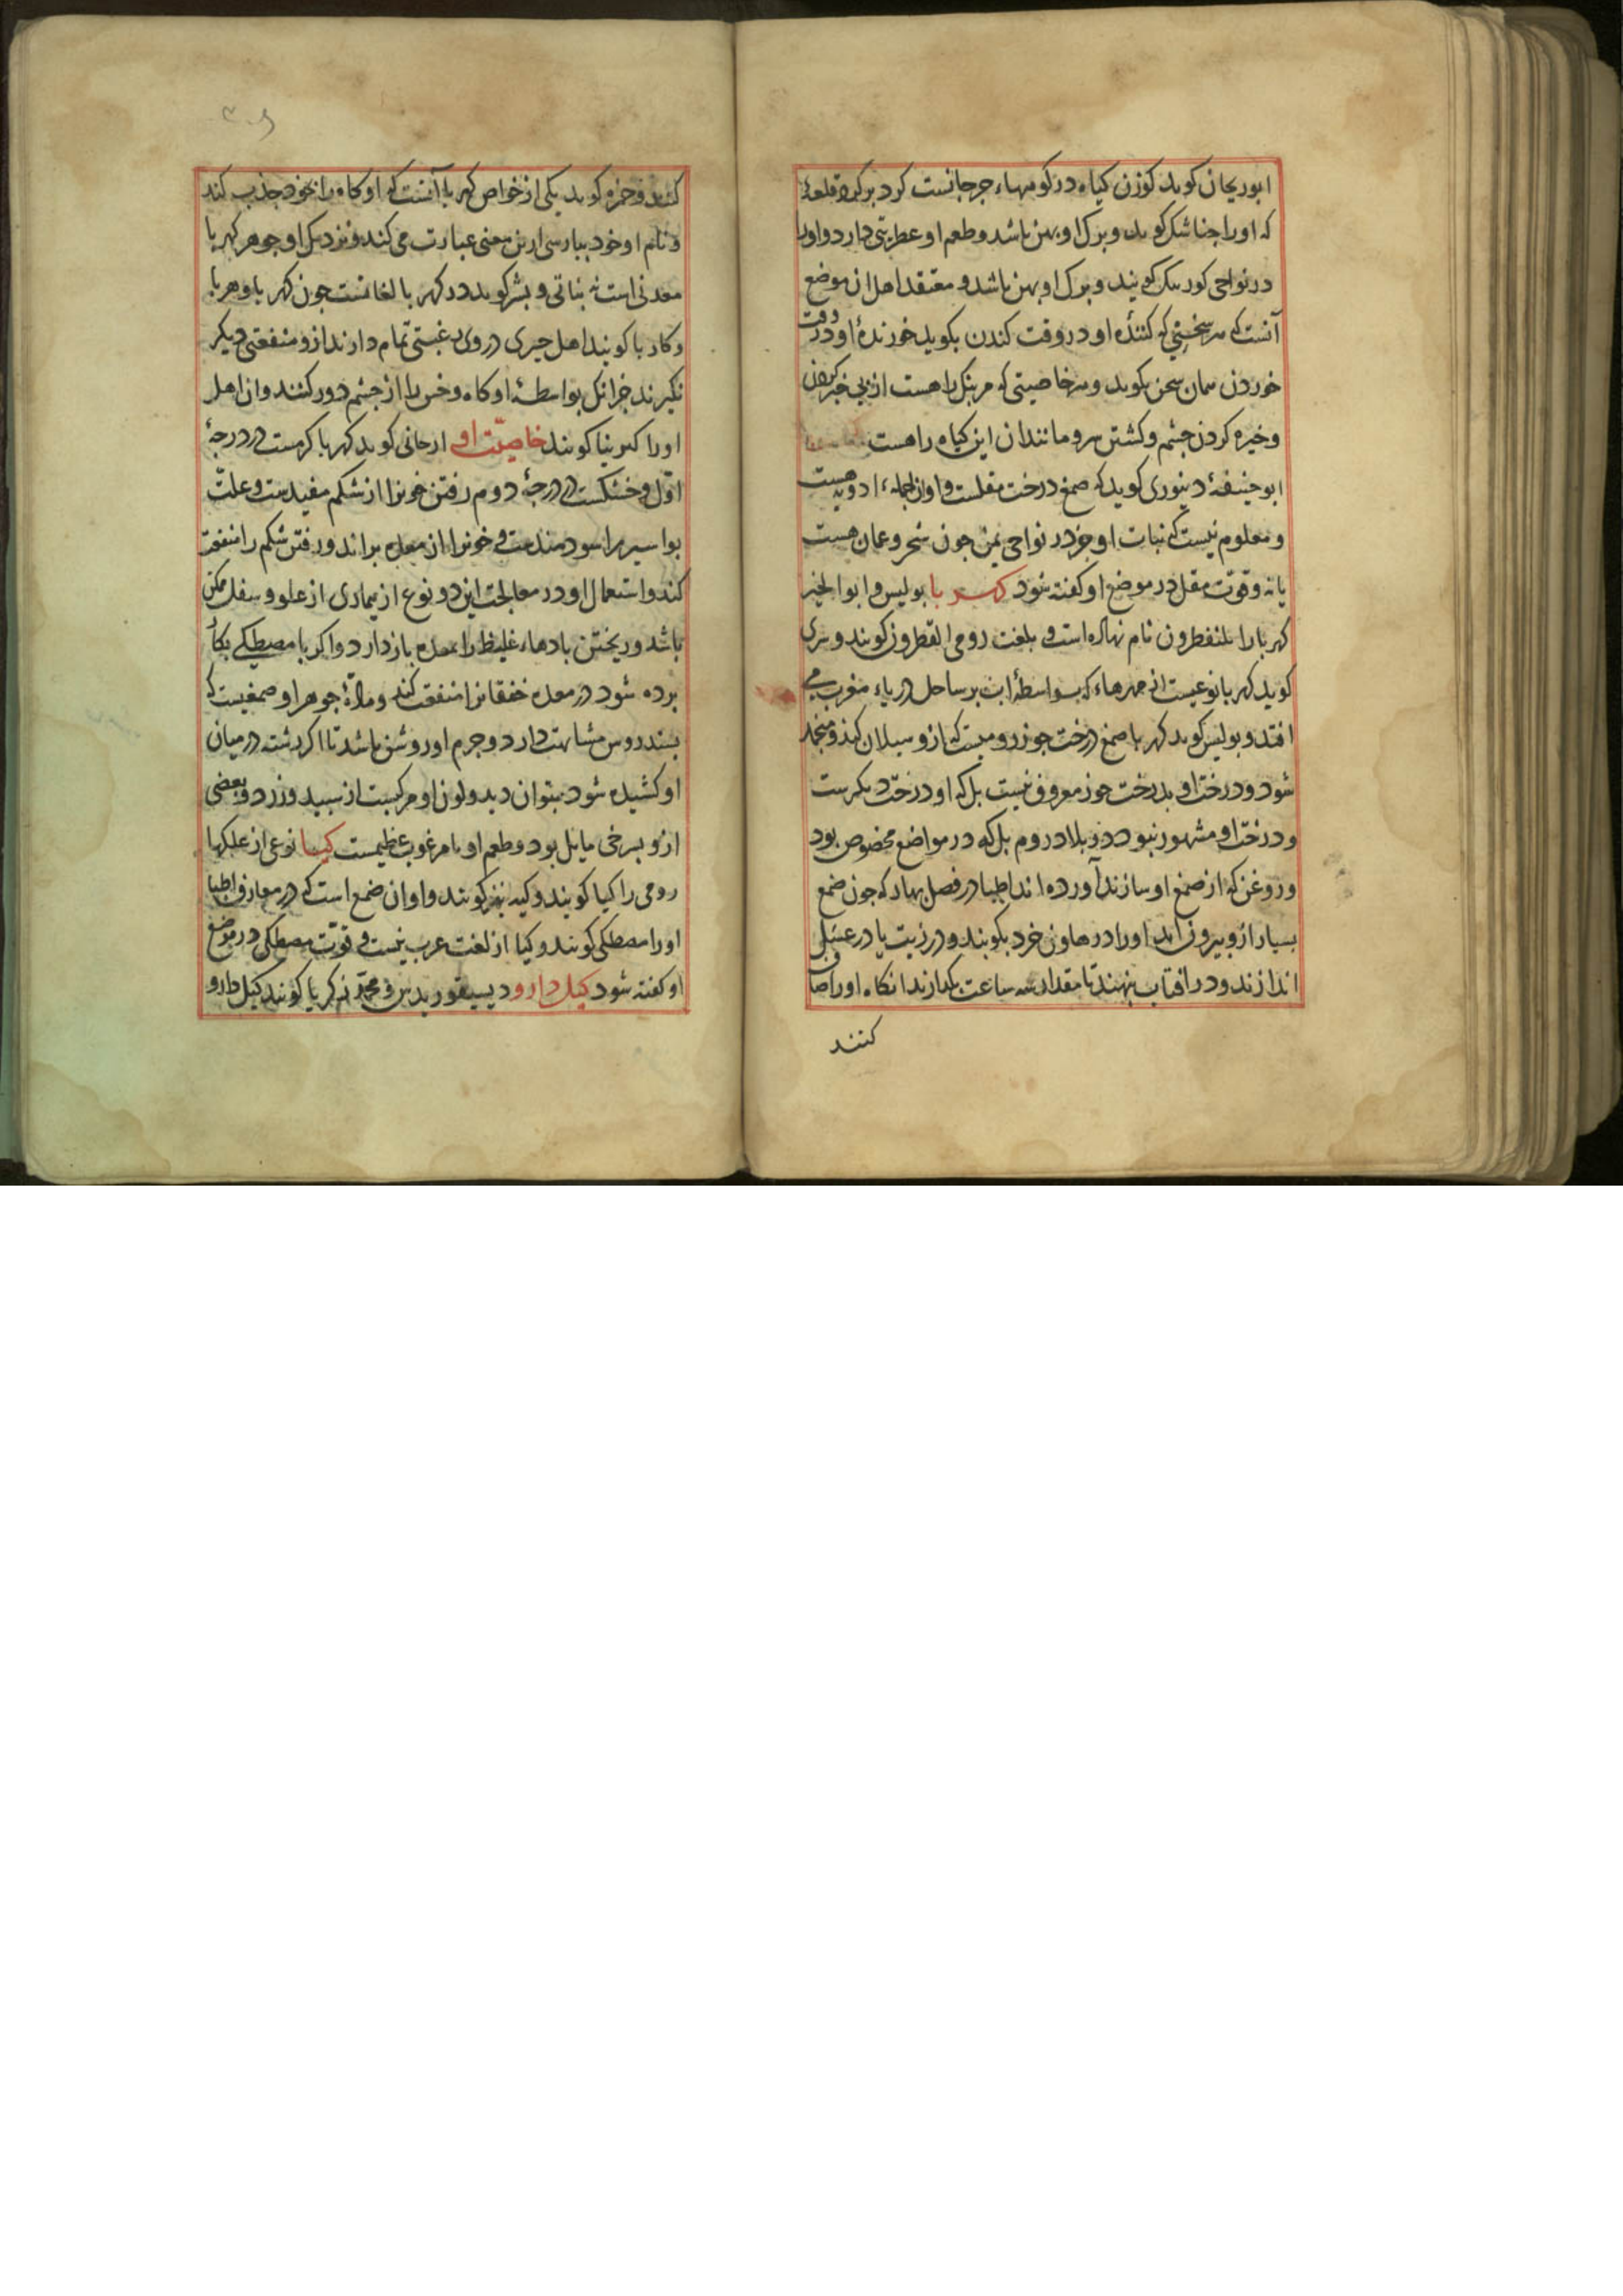 ابوریحان کوید کوزن کیاه در کوههاء جرجانست کرد بر کرد قلعهٔ
که اورا جناشک کویند و برک او پهن باشد و طعم او عطریتی دارد و اورا
در نواحی کویند و برک او پهن باشد و معتقد اهل ان موضع
آنست که هر سخنی که کنندهٔ او در وقت کندن بکوید خورندهٔ او در وقت
خوردن همان سخن بکوید و هر خاصیتی که مر بنک را هست از بی خبر کردن
و خیره کردن جشم و کشتن سر و مانند ان این کیاه را هست
ابو حنیفهٔ دینوری کوید که صمغ درخت مقلست و او از جملهٔ ادویه هست
و معلوم نیست که نبات او جز در نواحی یمن جون شحر و عمان هست
یا نه و قوّت مقل در موضع او کفته شود کهربا بولیس و ابو الخیر
کهربا را نام نهاده است و بلغت رومی القطرون کویند و
کوید کهربا نوعیست از مهرهاء که بواسطهٔ اب بر ساحل دریاء مغرب می
افتد و بولیس کوید کهربا صمغ درخت جوز رومیست که ازو سیلان کند و منجمد
شود و درخت او بدرخت جوز معروف نیست بل که او درخت دیکرست
و درخت او مشهور نبود در بلاد روم بل که در مواضع مخصوص بود
و روغن که از صمغ او سازند آورده اند اطبا در فصل بهار که جون صمغ
بسیار ازو بیرون اید اورا در هاون خرد بکوبند و در زیت یا در عسل
اندازند و در افتاب بنهند تا مقدار سه ساعت بکدازند انکاه اورا صاف
کنند
کنند و حمزه کوید یکی از خواص کهربا آنست که او کاه را بخود جذب کند
و نام او خود بپارسی ازین معنی عبارت می کند و نزدیک او جوهر کهربا
معدنی است نه نباتی و بشر کوید در کهربا لغاتست جون کهربا و هربا
و کاربا کویند اهل جیری در وی رغبتی تمام دارند ازو منفعتی دیکر
نکیرند جز انک بواسطهٔ او کاه و خس را از جشم دور کنند و ان اهل
اورا کویند خاصیّت او ارجانی کوید کهربا کرمست در درجهٔ
اوّل و خشکست در درجهٔ دوم رفتن خونرا از شکم مفیدست و علت
بواسیر را سودمندست و خونرا از معده براند و رفتن شکم را منفعت
کند و استعمال او در معالجت این دو نوع از بیماری از علو و سفل ممکن
باشد و ریختن بادهاء غلیظ را بمعده باز دارد و اکر با مصطکی بکار
برده شود در معده خفقانرا منفعت کند و مادّهٔ جوهر او صمغیست که
بسندروس مشابهت دارد و جرم او روشن باشد تا اکر رشته در میان
او کشیده شود بتوان دید و لون او مرکبست از سپید و زرد و بعضی
ازو بسرخی مایل بود و طعم او نامرغوب عظیمست کیا نوعی از علکها
رومی را کیا کویند و کیه نیز کویند و او ان صمغ است که در معارف اطبا
اورا مصطکی کویند و کیا از لغت عرب نیست و قوّت مصطکی در موضع
او کفته شود کیل دارو دیسقوریدس و محمّد زکریا کویند کیل دارو